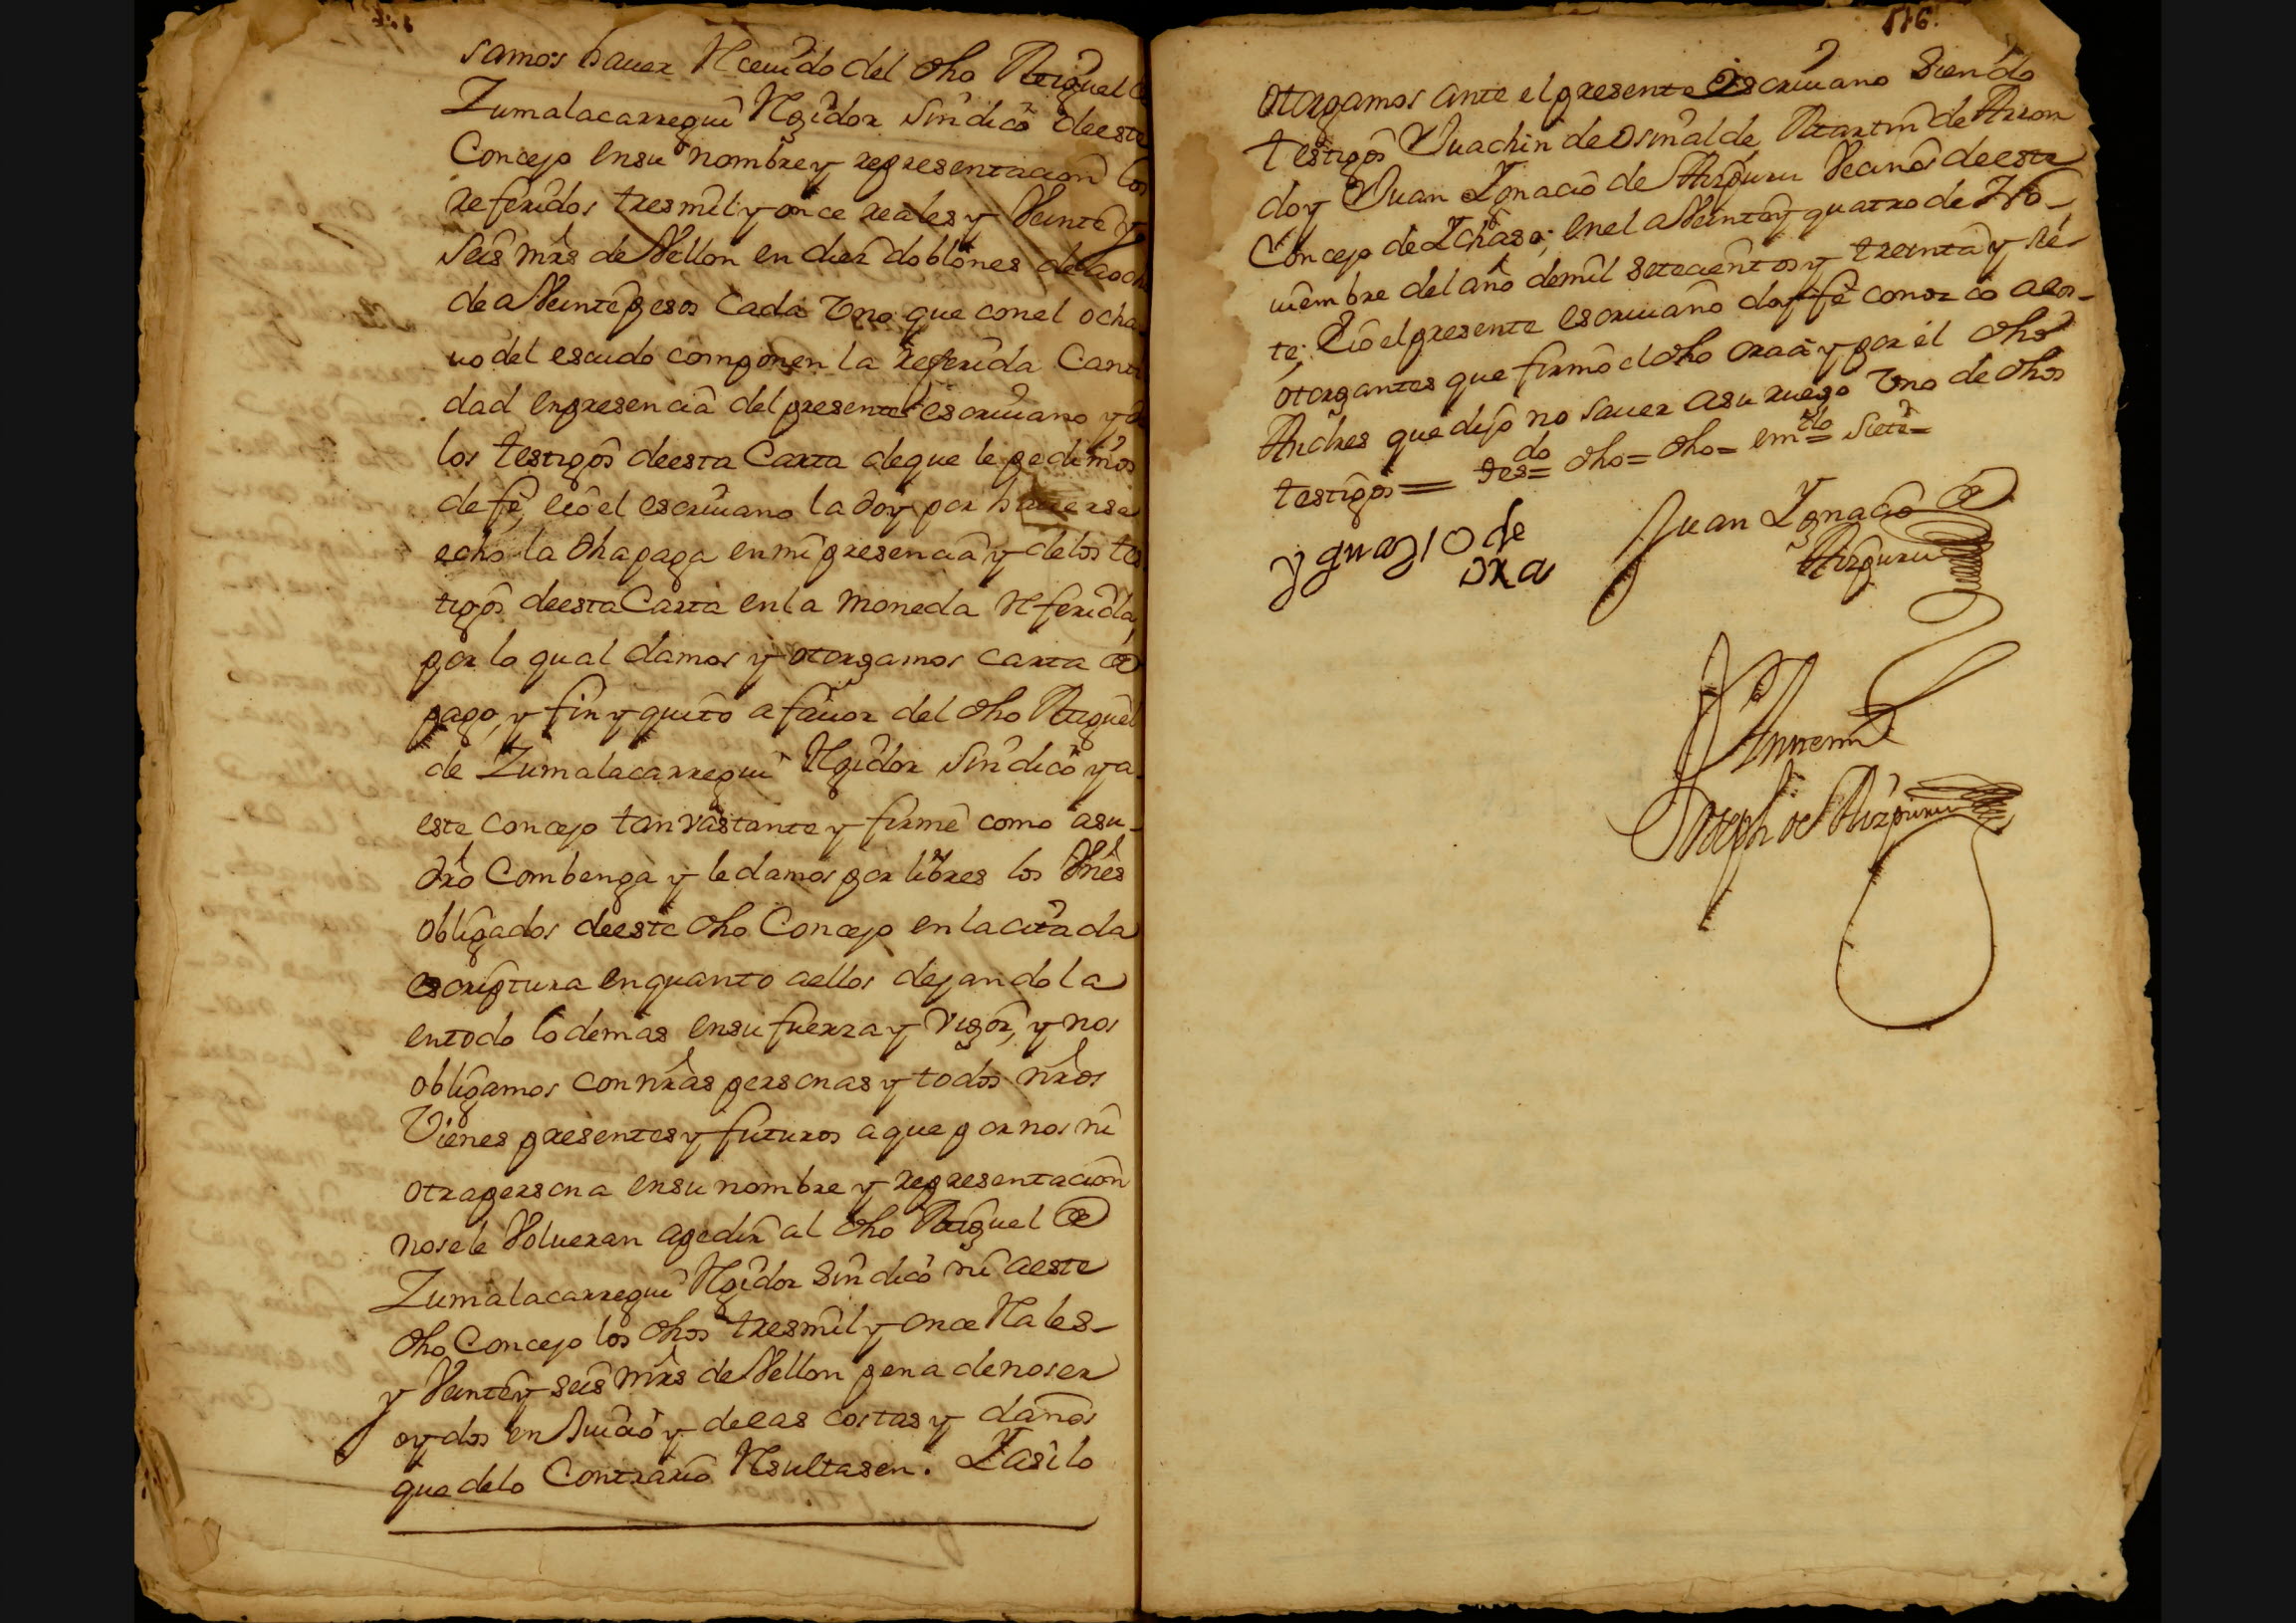 samos hauer Rceuido del dho Miguel de
Zumalacarregui Rgidor sindico deeste
Concejo ensu nombre y representacion los
referidos tresmil y once reales y Veinte y
seis mrs de Vellon en diez doblones de a ocho
de a Veinte pesos Cada Vno que con el ocha
uo del escudo componen la referida Canti
dad enpresencia del presente escriuano y de
los testigos deesta Carta deque le pedimos
de fe, eio el escriuano la doy por hauerse
echo la dha paga en mi presencia y de los tes
tigos deesta Carta en la moneda Rferida,
por lo qual damos y otorgamos carta de
pago, y fin y quito a fauor del dho Miguel
de Zumalacarregui Rgidor sindico y a
este concejo tan vastante y firme como asu
dro Combenga y le damos por libres los Vnes
obligados deeste dho Concejo en la citada
escriptura enquanto aellos dejandola
entodo lo demas ensu fuerza y vigor, y nos
obligamos con nras personas y todos nros
Vienes presentes y futuros aque por nos ni
otra persona ensu nombre y representacion
nosele Volueran apedir al dho Miguel de
Zumalacarregui Rgidor Sindico ni aeste
dho Concejo los dhos tresmil y once Rales
y Veinte y seis mrs de Vellon pena denoser
oydos en Juicio y delas costas y daños
que delo Contrario Rsultasen. Y asi lo
516.
otorgamos ante el presente escriuano Siendo
testigos Juachin de Osinalde Martin de Arron
do y Juan Ygnacio de Aizpuru Vecinos deeste
Concejo de Ychaso; en el a Veinte y quatro de No-
uiembre del año demil setecientos y treinta y sie-
te; Eio el presente escriuano doy fe conozco alos
otorgantes que firmo el dho oraa y por el dho
Andres que dijo no sauer asu ruego Vno de dhos
testigos = tesdo = dho = dho = emdo = siete =
ygnazio de
ora
Juan Ygnacio de
Aizpuru
Antemi
Joseph de Aizpuru